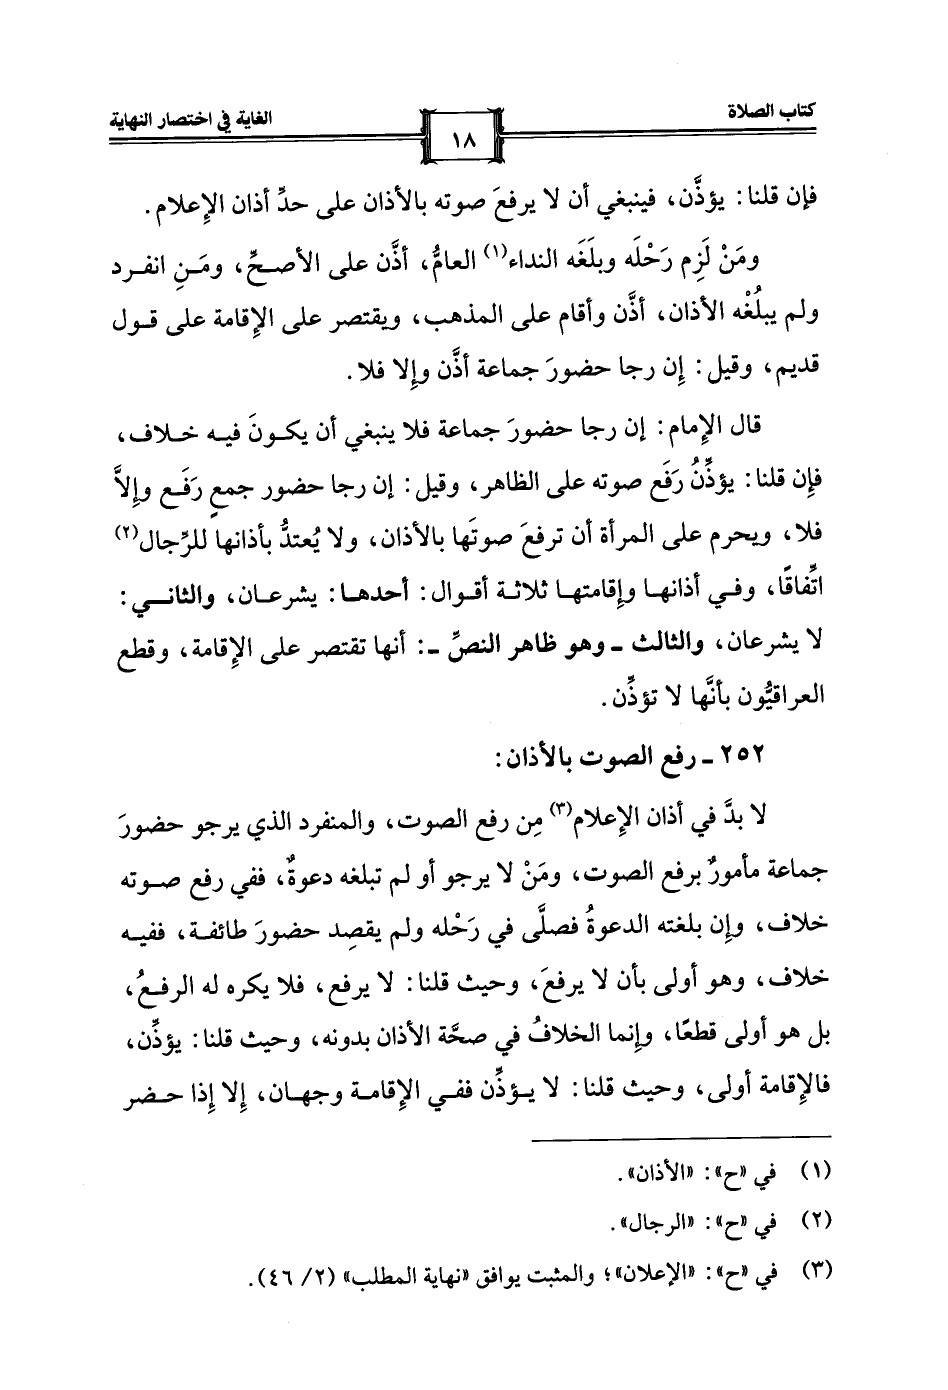 كتاب الصلاة
١٨
الغاية في اختصار النهاية
فإن قلنا: يؤذَّن، فينبغي أن لا يرفعَ صوته بالأذان على حدِّ أذان الإعلام.
ومَنْ لَزِم رَحْلَه وبلَغَه النداء(١) العامُّ، أذَّن على الأصحِّ، ومَنِ انفرد
ولم يبلُغْه الأذان، أذَّن وأقام على المذهب، ويقتصر على الإقامة على قول
قديم، وقيل: إن رجا حضورَ جماعة أذَّن وإلا فلا.
قال الإمام: إن رجا حضورَ جماعة فلا ينبغي أن يكونَ فيه خلاف،
فإن قلنا: يؤذِّنُ رَفَع صوته على الظاهر، وقيل: إن رجا حضور جمعٍ رَفَع وإلاَّ
فلا، ويحرم على المرأة أن ترفعَ صوتَها بالأذان، ولا يُعتدُّ بأذانها للرِّجال(٢)
اتِّفاقًا، وفي أذانها وإقامتها ثلاثة أقوال: أحدها: يشرعان، والثاني:
لا يشرعان، والثالث ـ وهو ظاهر النصِّ ـ: أنها تقتصر على الإقامة، وقطع
العراقيُّون بأنَّها لا تؤذِّن.
٢٥٢ ـ رفع الصوت بالأذان:
لا بدَّ في أذان الإعلام(٣) مِن رفع الصوت، والمنفرد الذي يرجو حضورَ
جماعة مأمورٌ برفع الصوت، ومَنْ لا يرجو أو لم تبلغه دعوةٌ، ففي رفع صوته
خلاف، وإن بلغته الدعوةُ فصلَّى في رَحْله ولم يقصِد حضورَ طائفة، ففيه
خلاف، وهو أولى بأن لا يرفعَ، وحيث قلنا: لا يرفع، فلا يكره له الرفعُ،
بل هو أولى قطعًا، وإنما الخلافُ في صحَّة الأذان بدونه، وحيث قلنا: يؤذِّن،
فالإقامة أولى، وحيث قلنا: لا يؤذِّن ففي الإقامة وجهان، إلا إذا حضر
(١) في «ح»: «الأذان».
(٢) في «ح»: «الرجال».
(٣) في «ح»: «الإعلان»؛ والمثبت يوافق «نهاية المطلب» (٢/ ٤٦).